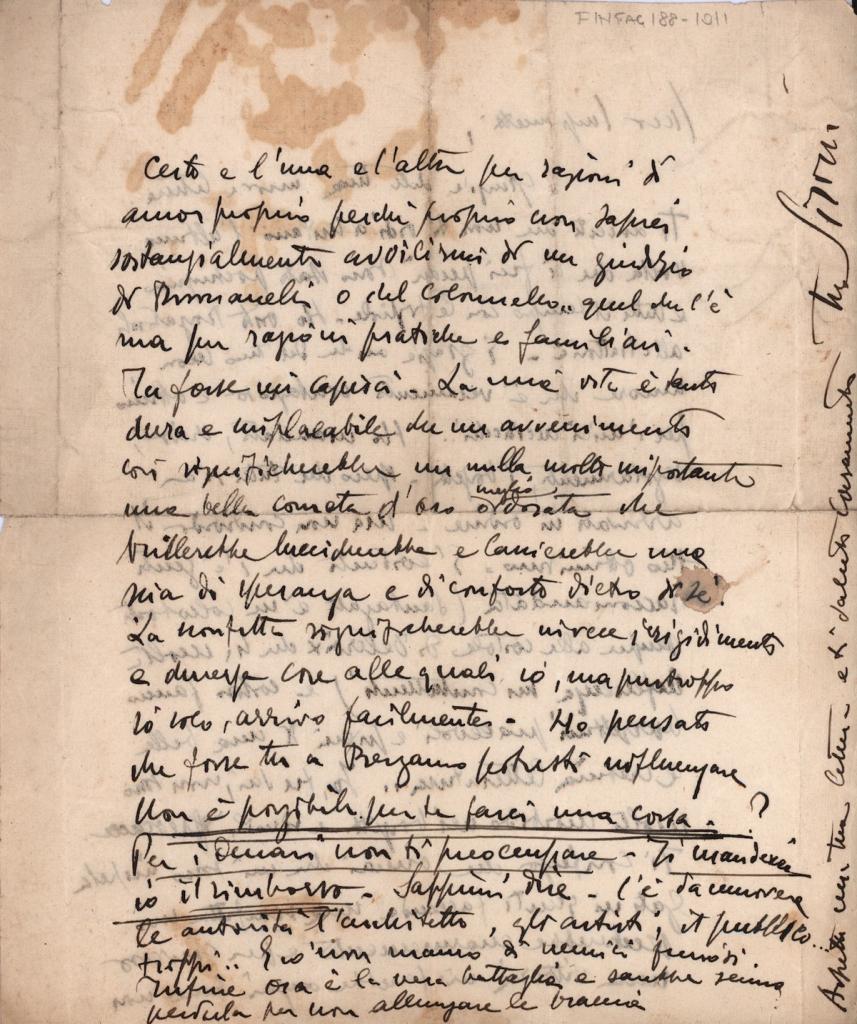 FINFAG188-1011
Certo e l'una e l'altra per ragioni di
amor proprio perchè proprio non saprei
sostanzialmente addirmi di un giudizio
di o del colonnello.. quel che c'è
ma per ragioni pratiche e familiari.
Tu forse mi capirai. La mia vita è tanto
dura e implacabile che un avvenimento
così significherebbe un nulla molto importante
una bella cometa d'oro o meglio dorata che
brillerebbe luccicherebbe e lascierebbe una
scia di speranza e di conforto dietro di sè.
La sconfitta significherebbe invece irrigidimento
e diverse cose alle quali io, ma purtroppo
io solo, arrivo facilmente. Ho pensato
che forse tu a Bergamo potresti influenzare
Non è possibile per te farci una corsa. ?
Per i denari non ti preoccupare. Ti manderei
io il rimborso. Sappimi dire. C'è da smuovere
le autorità l'architetto, gli artisti, il pubblico..
troppi.. E io non manco di nemici furiosi
Infine ora è la vera battaglia e sarebbe scema
perderla per non allungare le braccia
Aspetto una tua lettera e ti saluto caramente
tuo Sironi